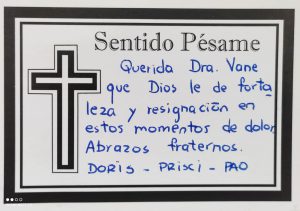 Sentido Pésame
Querida Dra. Vane
que Dios le de forta
leza y resignación en
estos momentos de dolor
Abrazos fraternos.
DORIS - PRISCI - PAO